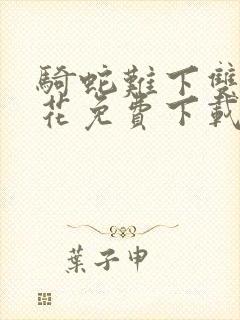 騎蛇難下雙
花免費下載
葉子申